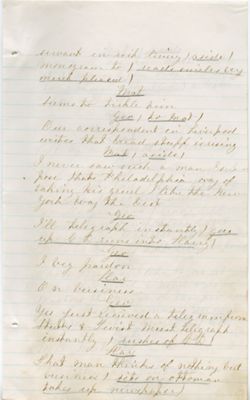 servant in rich livery / aside /
monogram to / reads smiles very
much pleased /
Mat
Seems to tickle him
Geo / to Mat /
Our correspondent in Liverpool
writes that bread stuffs is using
Mat / aside /
I never saw such a man I sup
pose thats Philadelphia way of
taking his gruel I like the New
York way the best
Geo
I'll telegraph instantly / goes
up C runs into Harry /
Geo
I beg pardon
Har
On business
Geo
Yes just received a telegram from
& must telegraph
instantly / rushes off
Har
That man thinks of nothing but
business / sits on ottoman
takes up newspaper /